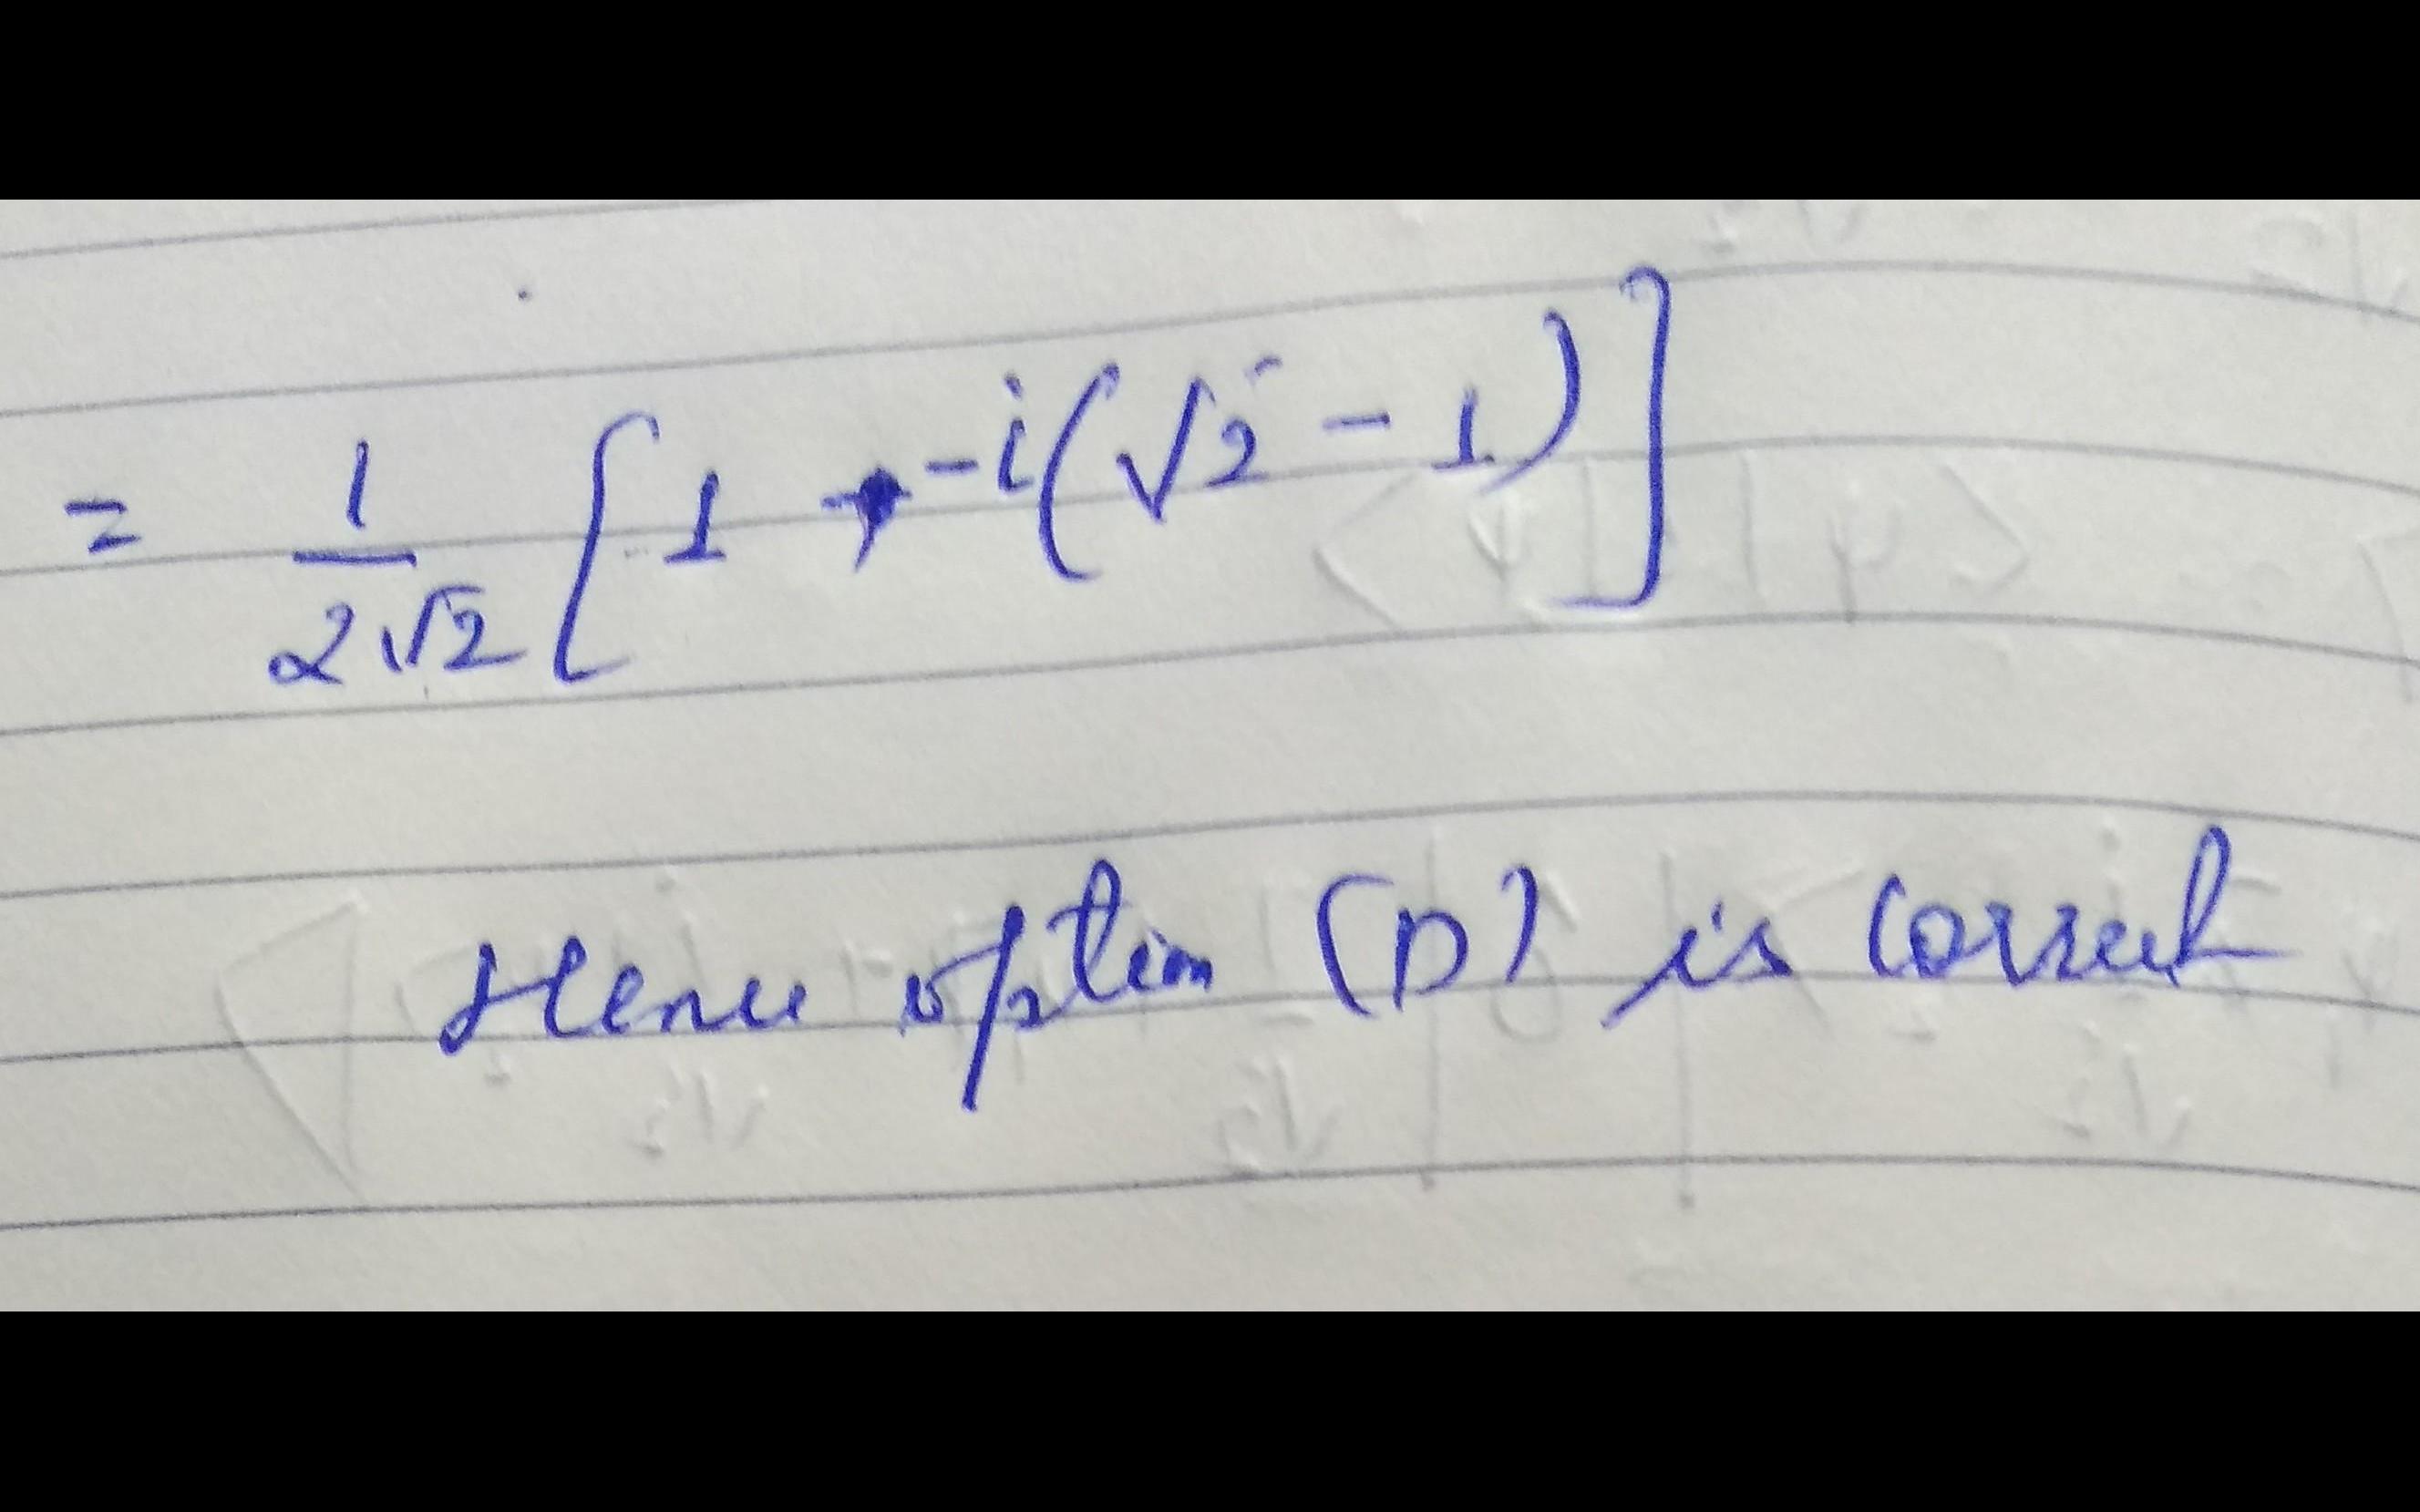 = 1/2√2 [1 -i(√2 - 1)]
Hence option (D) is correct